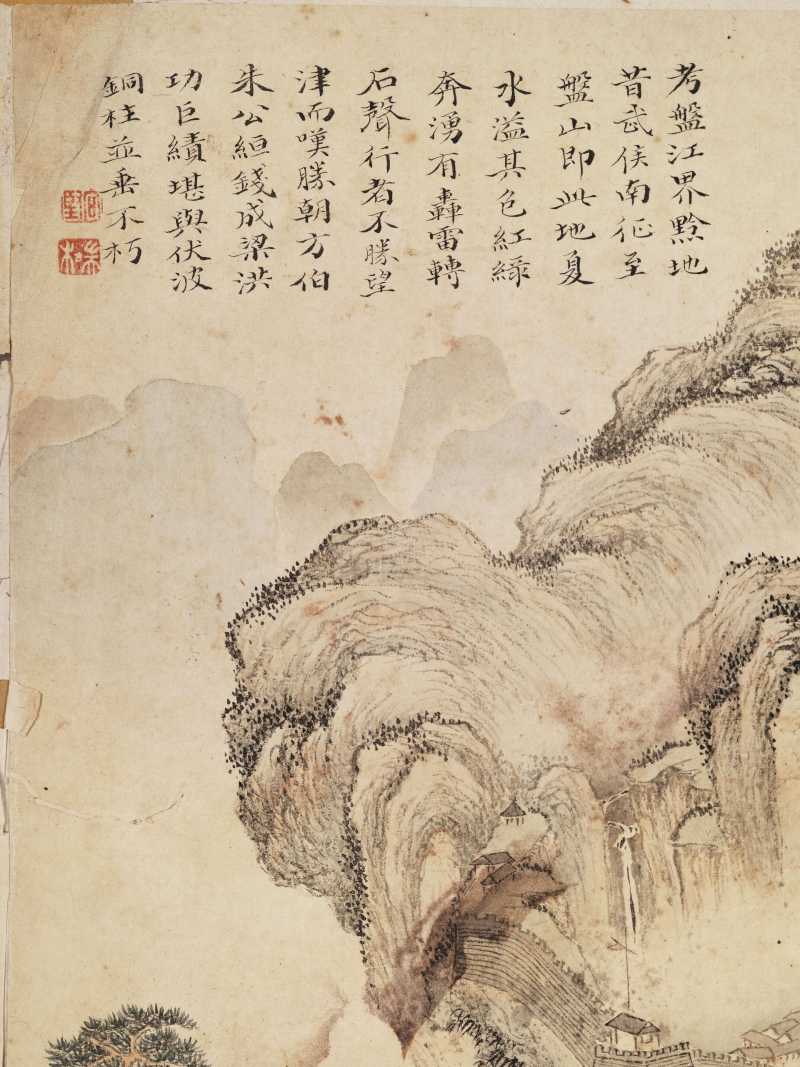 考盤江界黔地
昔武侯南征至
盤山即此地夏
水溢其色紅緑
奔湧有轟雷轉
石聲行者不勝望
津而嘆勝朝方伯
朱公絙錢成梁洪
功巨績堪與伏波
銅柱並垂不朽